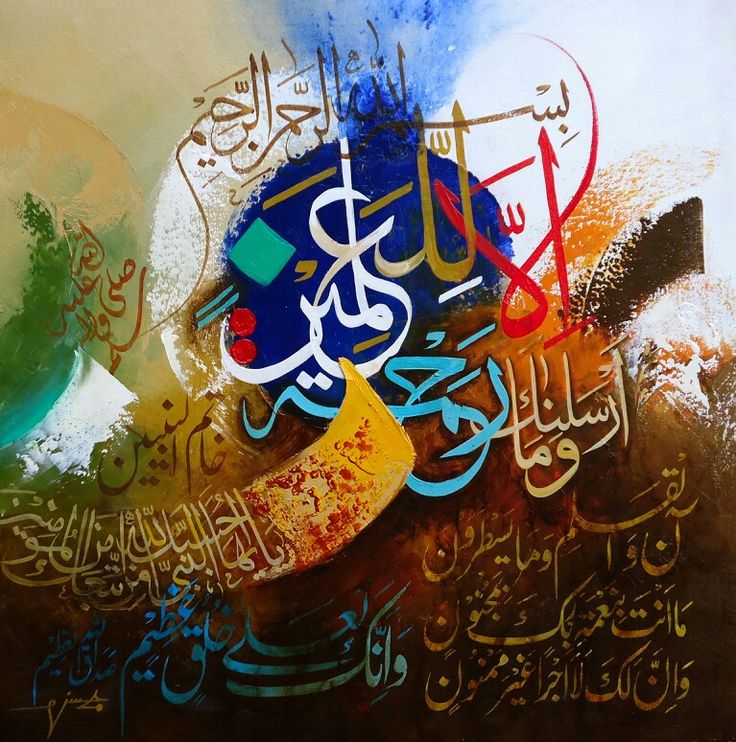 بِسْمِ اللهِ الرَّحْمٰنِ الرَّحِيْمِ
وَمَا أَرْسَلْنٰكَ إِلَّا رَحْمَةً لِّلْعٰلَمِيْنَ
صلی اللہ علیہ وسلم
خاتم النبیین
یایها النبی حسبك الله ومن اتبعك من المؤمنین
نٓ وَالْقَلَمِ وَمَا يَسْطُرُوْنَ
مَا اَنْتَ بِنِعْمَةِ رَبِّكَ بِمَجْنُوْنٍ
وَاِنَّ لَكَ لَاَجْرًا غَيْرَ مَمْنُوْنٍ
وَاِنَّكَ لَعَلٰى خُلُقٍ عَظِيْمٍ
صدق الله العظیم